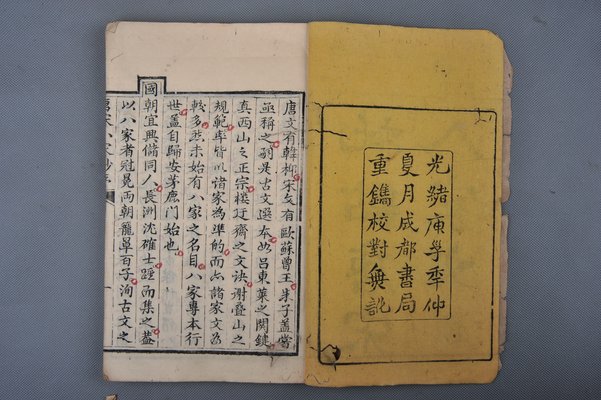 光緒庚子秊仲
夏月成都書局
重鐫校對無訛
唐文有韓柳宋文有歐蘇曾王朱子蓋嘗
亟稱之嗣是古文選本如呂東萊之關鍵
真西山之正宗樓迂齋之文訣謝疊山之
規範率皆以諸家為準的而諸家文為
較多然未始有八家之名目八家專本行
世蓋自歸安茅鹿門始也
國朝宜興儲同人長洲沈確士踵而集之蓋
以八家者冠冕兩朝籠罩百子洵古文之